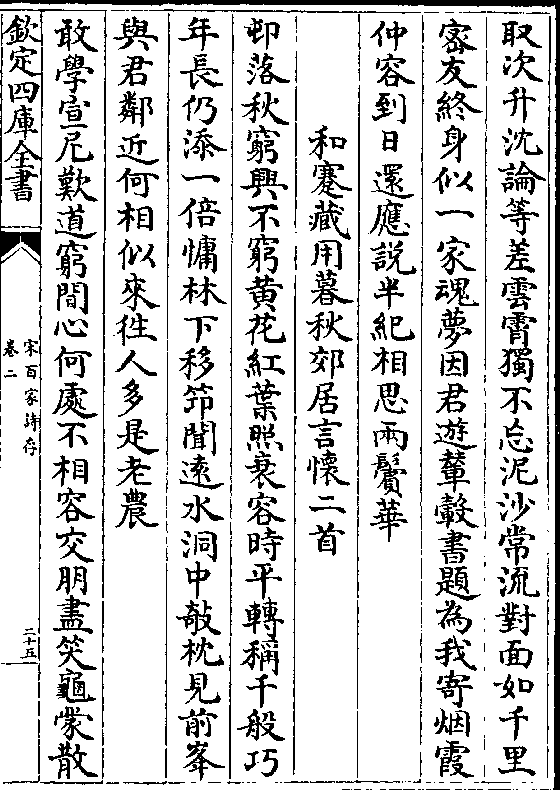 取次升沈論等差雲霄獨不忘泥沙常流對面如千里
宻友終身似一家魂夢因君遊輦轂書題為我寄烟霞
仲容到日還應説半紀相思兩鬢華
和蹇藏用暮秋郊居言懷二首
邨落秋窮興不窮黄花紅葉照衰容時平轉稱千般巧
年長仍添一倍慵林下移笻聞逺水洞中敧枕見前峯
與君鄰近何相似來徃人多是老農
敢學宣尼歎道窮間心何處不相容交朋盡笑龜蒙散
欽定四庫全書
宋百家詩存
卷二
二十五